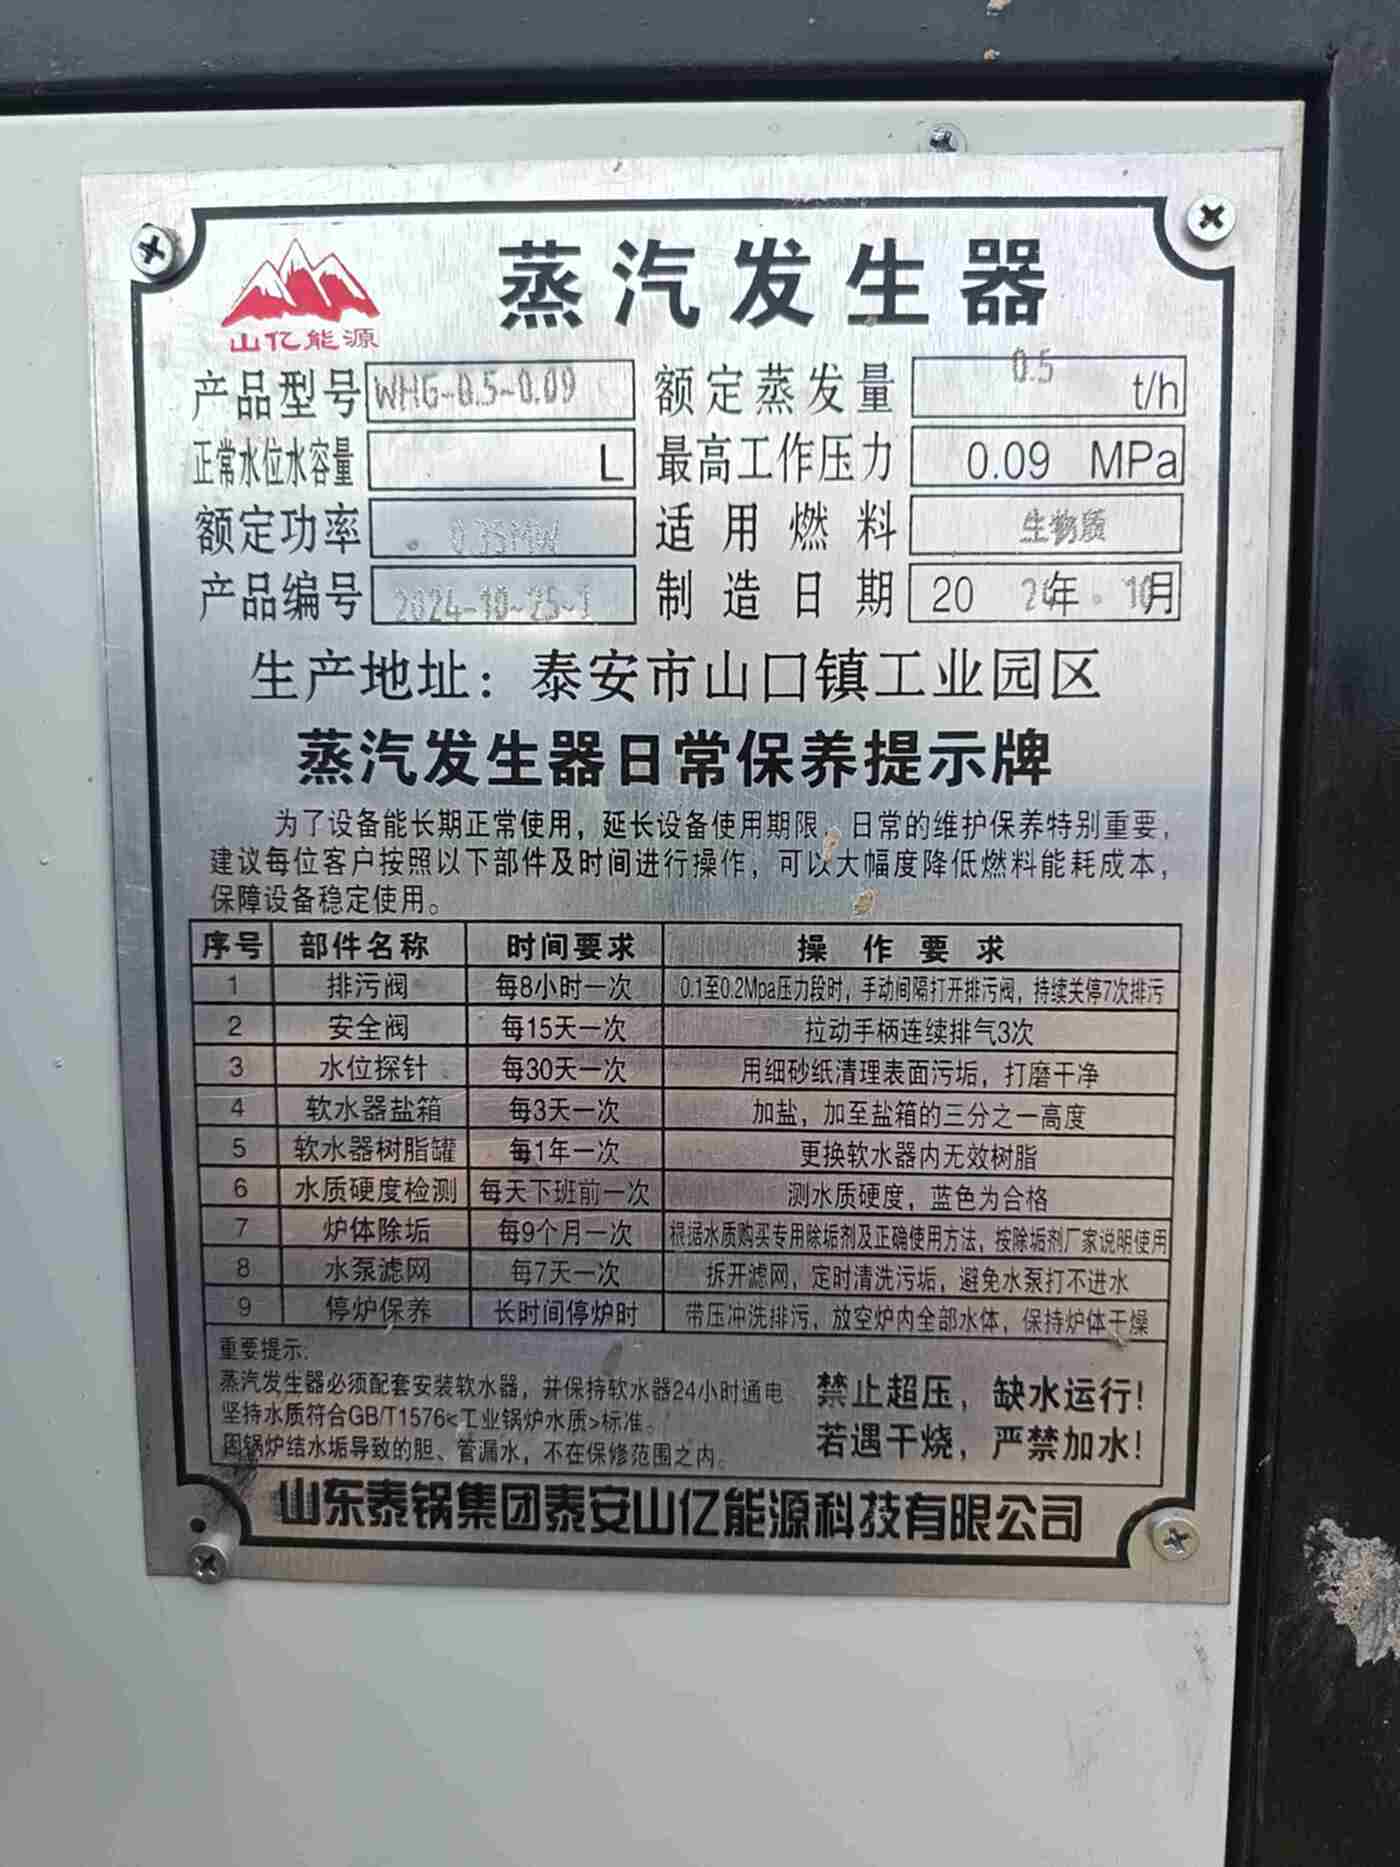 山亿能源
蒸汽发生器
产品型号 WHG-0.5-0.09 额定蒸发量 0.5 t/h
正常水位水容量 L 最高工作压力 0.09 MPa
额定功率 0.35MW 适用燃料 生物质
产品编号 2024-10-25-1 制造日期 20 24年 10月
生产地址：泰安市山口镇工业园区
蒸汽发生器日常保养提示牌
为了设备能长期正常使用，延长设备使用期限，日常的维护保养特别重要，
建议每位客户按照以下部件及时间进行操作，可以大幅度降低燃料能耗成本，
保障设备稳定使用。
序号 部件名称 时间要求 操作要求
1 排污阀 每8小时一次 0.1至0.2Mpa压力段时，手动间隔打开排污阀，持续关停7次排污
2 安全阀 每15天一次 拉动手柄连续排气3次
3 水位探针 每30天一次 用细砂纸清理表面污垢，打磨干净
4 软水器盐箱 每3天一次 加盐，加至盐箱的三分之一高度
5 软水器树脂罐 每1年一次 更换软水器内无效树脂
6 水质硬度检测 每天下班前一次 测水质硬度，蓝色为合格
7 炉体除垢 每9个月一次 根据水质购买专用除垢剂及正确使用方法，按除垢剂厂家说明使用
8 水泵滤网 每7天一次 拆开滤网，定时清洗污垢，避免水泵打不进水
9 停炉保养 长时间停炉时 带压冲洗排污，放空炉内全部水体，保持炉体干燥
重要提示:
蒸汽发生器必须配套安装软水器，并保持软水器24小时通电
坚持水质符合GB/T1576<工业锅炉水质>标准。
因锅炉结水垢导致的胆、管漏水，不在保修范围之内。
禁止超压，缺水运行!
若遇干烧，严禁加水!
山东泰锅集团泰安山亿能源科技有限公司